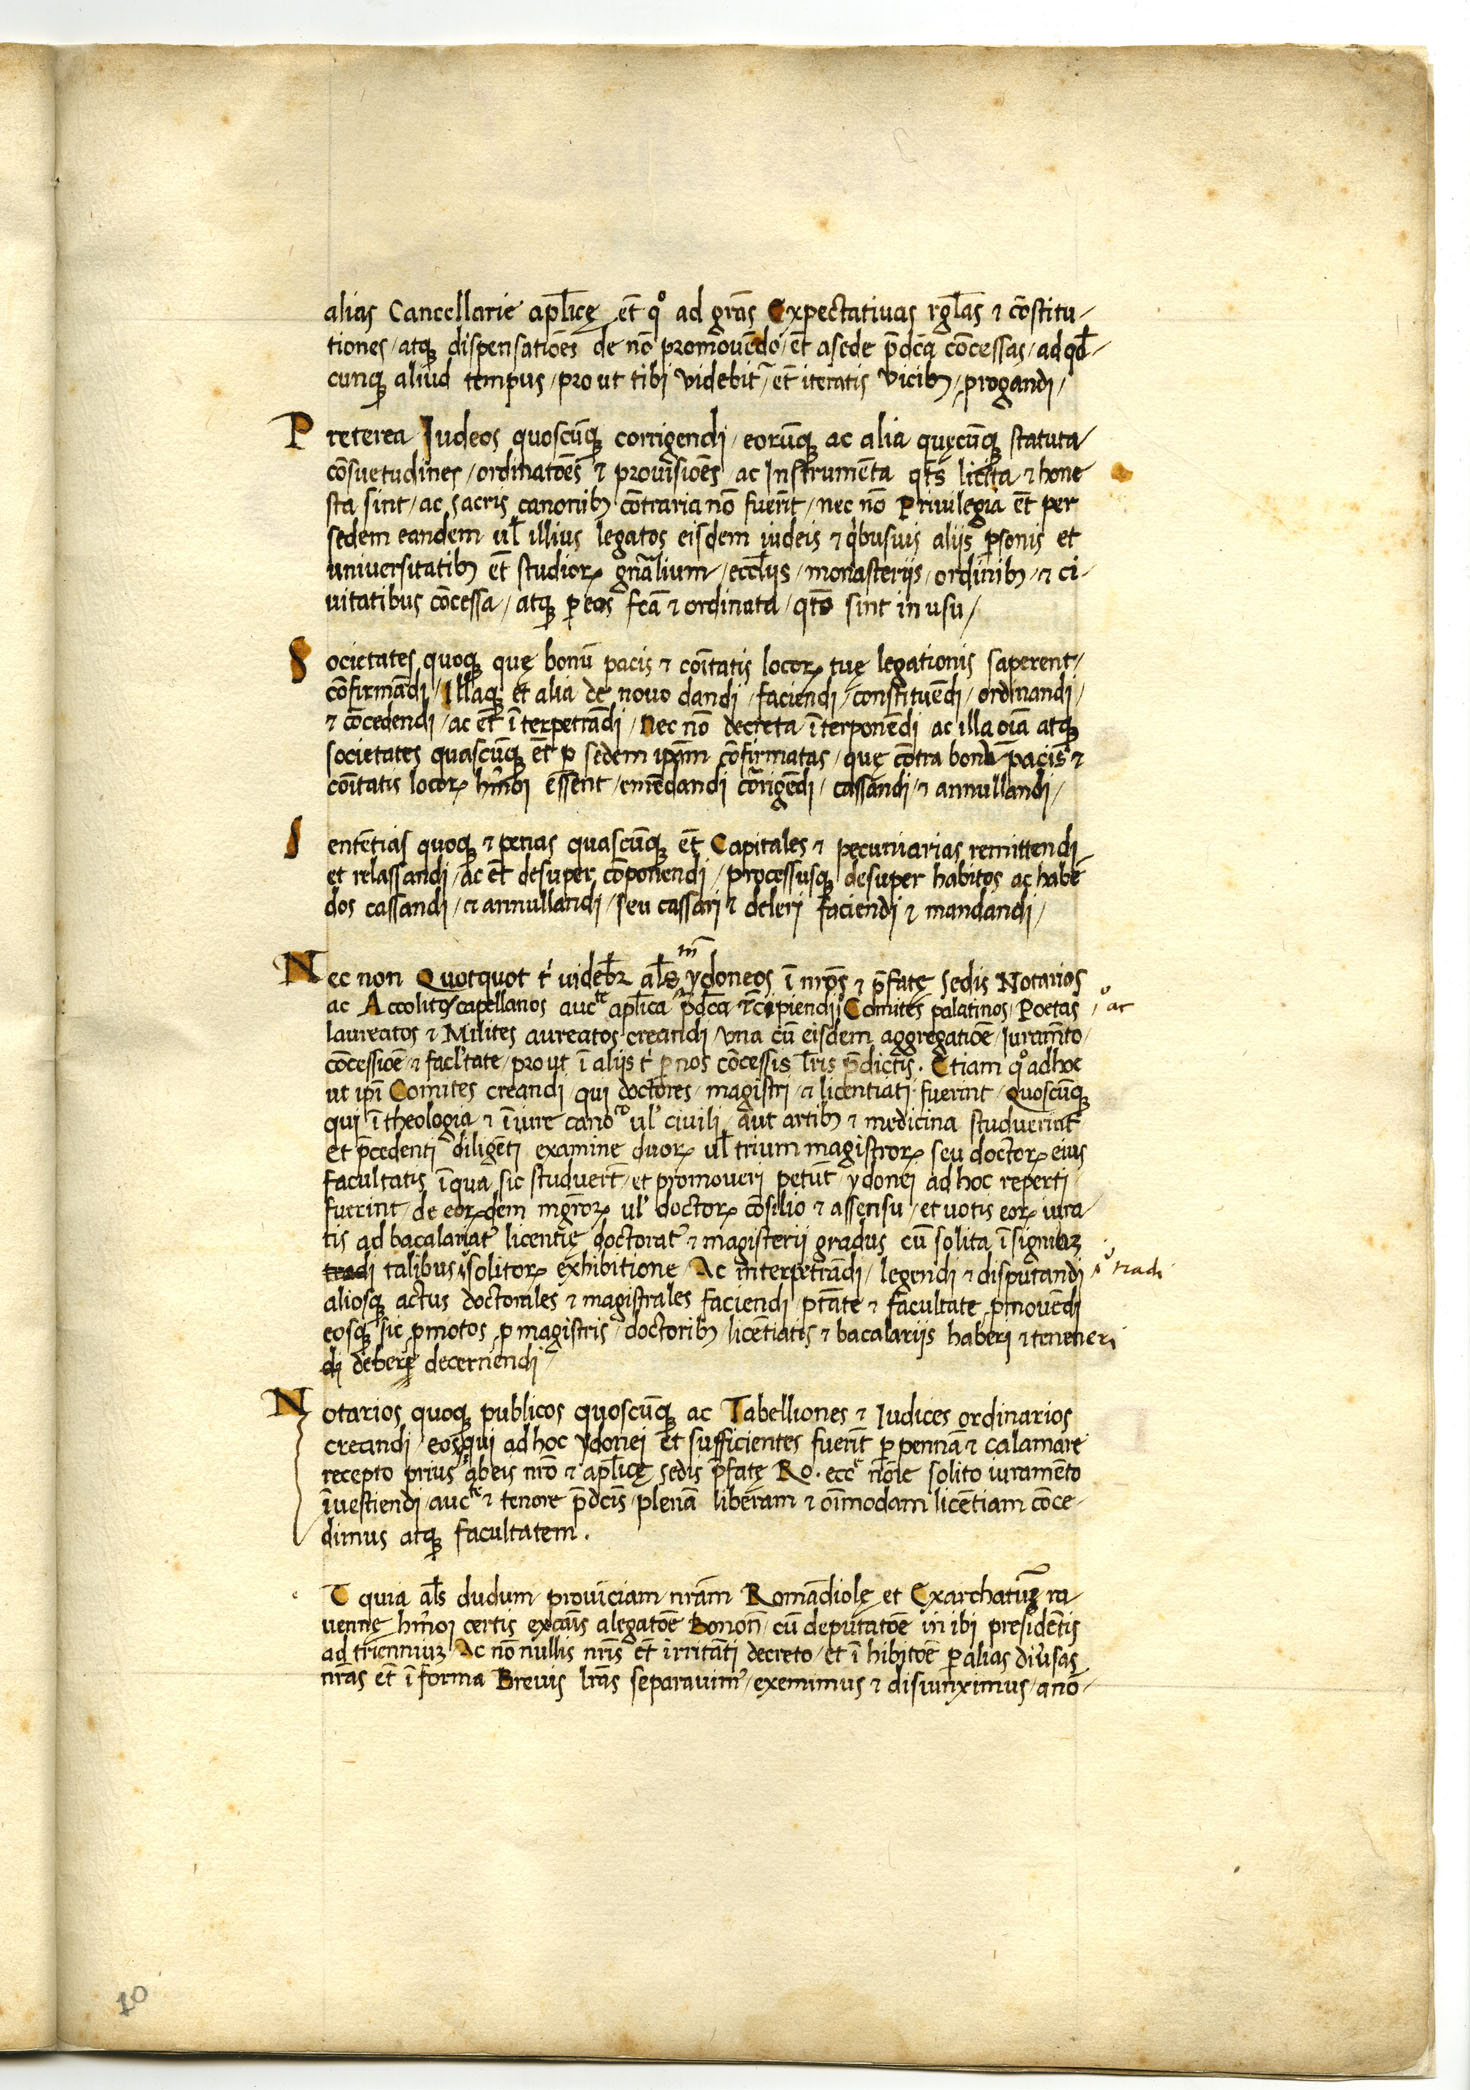 alias Cancellarie apl̄icę / et̄ qͦ ad grās Expectatiuas rgl̄as ⁊ cōstitu-
tiones / atqꝫ dispensatiōēs de nō promouēdo / et̄ asede p̄dc̄a cōcessas / ad qd̄-
cunqꝫ aliud tempus / pro ut tibi videbit᷑ / et̄ iteratis vicibꝫ / ꝓrogandi /
Preterea Iudeos quoscūqꝫ corrigendi / eorūqꝫ ac alia quęcūqꝫ statuta /
cōsuetudines / ordinatōes ⁊ prouisiōes / ac Instrumēta qt̄s licita ⁊ hone
sta sint / ac sacris canonibꝫ cōtraria nō fuerīt / nec nō Priuilegia et̄ per
sedem eandem ul̄ illius legatos eisdem iudeis ⁊ qͥbusuis alijs ꝑsonis et
uniuersitatibꝫ et̄ studioꝝ gn̄alium / eccl̄ijs / monasterijs / ordinibꝫ / ⁊ ci-
uitatibus cōcessa / atqꝫ ꝑ eos fc̄a ⁊ ordinata / qt̄s sint in usu /
Societates quoqꝫ quę bonū pacis ⁊ coītatis locoꝝ tuę legationis saperent /
cōfirmādi / Illaqꝫ et alia de nouo dandi / faciendi / constituēdi / ordinandi /
⁊ cōcedendi / ac et̄ īterpetrādi / Nec nō decreta īterponēdi ac illa oīa atqꝫ
societates quascūqꝫ et̄ ꝑ sedem ip̄am cōfirmatas / quę cōtra bonū pacis ⁊
coītatis locoꝝ hm̄oi essent / emēdandi corrigēdi / cassandi / ⁊ annullandi /
Sentētias quoqꝫ ⁊ penas quascūqꝫ et̄ Capitales ⁊ pecuniarias remittendi
et relassandi / ac et̄ desuper cōponendi / processusqꝫ desuper habitos ac habē
dos cassandi / ⁊ annullandi / seu cassari ⁊ deleri faciendi ⁊ mandandi /
m̄
Nec non Quotquot tͥ uideb̄r al̄s ydoneos ī nr̄os ⁊ p̄fatę sedis Notarios
ac Accolitos capellanos aucᵗᵉ apl̄ica p̄dc̄a rēcipiendi Comites palatinos / Poetas / ac
laureatos ⁊ Milites aureatos creandi / vna cū eisdem aggregatiōe / Iuramēto /
cōcessiōe ⁊ facl̄tate / pro ut ī alijs tͥ ꝑ nos cōcessis l̄ris p̄dictis. Etiam qͦ ad hoc
ut ip̄i Comites creandi qui doctores / magistri / ⁊ licentiati fuerint / Quoscūqꝫ
qui ī theologia ⁊ ī iure canoᶜᵒ ul̄ ciuili / aut artibꝫ ⁊ medicina studuerint
et p̄cedenti diligēti examine duoꝝ ul̄ trium magistroꝝ seu doctoꝝ eius
facultatis ī qua sic studuerīt / et promoueri petūt / ydonei ad hoc reperti
fuerint / de eoꝝdem mgr̄oꝝ ul̄ doctoꝝ cōsilio ⁊ assensu / et uotis eoꝝ iura
tis ad bacalariat᷒ licentię doctorat᷒ ⁊ magisterii gradus cū solita īsigniuꝫ
tradi talibus solitoꝝ exhibitione / Ac interpetrādi / legendi ⁊ disputandi / tradi
aliosqꝫ actus doctorales ⁊ magistrales faciendi ptāte ⁊ facultate ꝓmouēdi
eosqꝫ sic ꝓmotos ꝓ magistris / doctoribꝫ / licētiatis ⁊ bacalariis haberi ⁊ teneneri
di debere decernendi /
Notarios quoqꝫ publicos quoscūqꝫ ac Tabelliones ⁊ Iudices ordinarios
creandi / eosqꝫ qui ad hoc ydonei et sufficientes fuerīt ꝑ pennā ⁊ calamare
recepto prius ab eis nr̄o ⁊ apl̄icę sedis p̄fatę Ro. ecc̄ᵉ noīe solito iuramēto
īuestiendi / aucᵗᵉ ⁊ tenore p̄dc̄is / plenā liberam ⁊ oīmodam licētiam cōce-
dimus atqꝫ facultatem.
T quia al̄s dudum / prouīciam nr̄am Romādiolę et Exarchatuꝫ ra-
uennę / hm̄oi certis ex cāis a legatōe Bonoñ / cū deputatōe inibi presidētis
ad triennīuꝫ Ac nō nullis nr̄is et̄ irritāti decreto / et ī hibitōe ꝑ alias diūsas
nr̄as et̄ ī forma Breuis l̄ras separauim᷒ / exemimus ⁊ disiunximus / a nō-
10